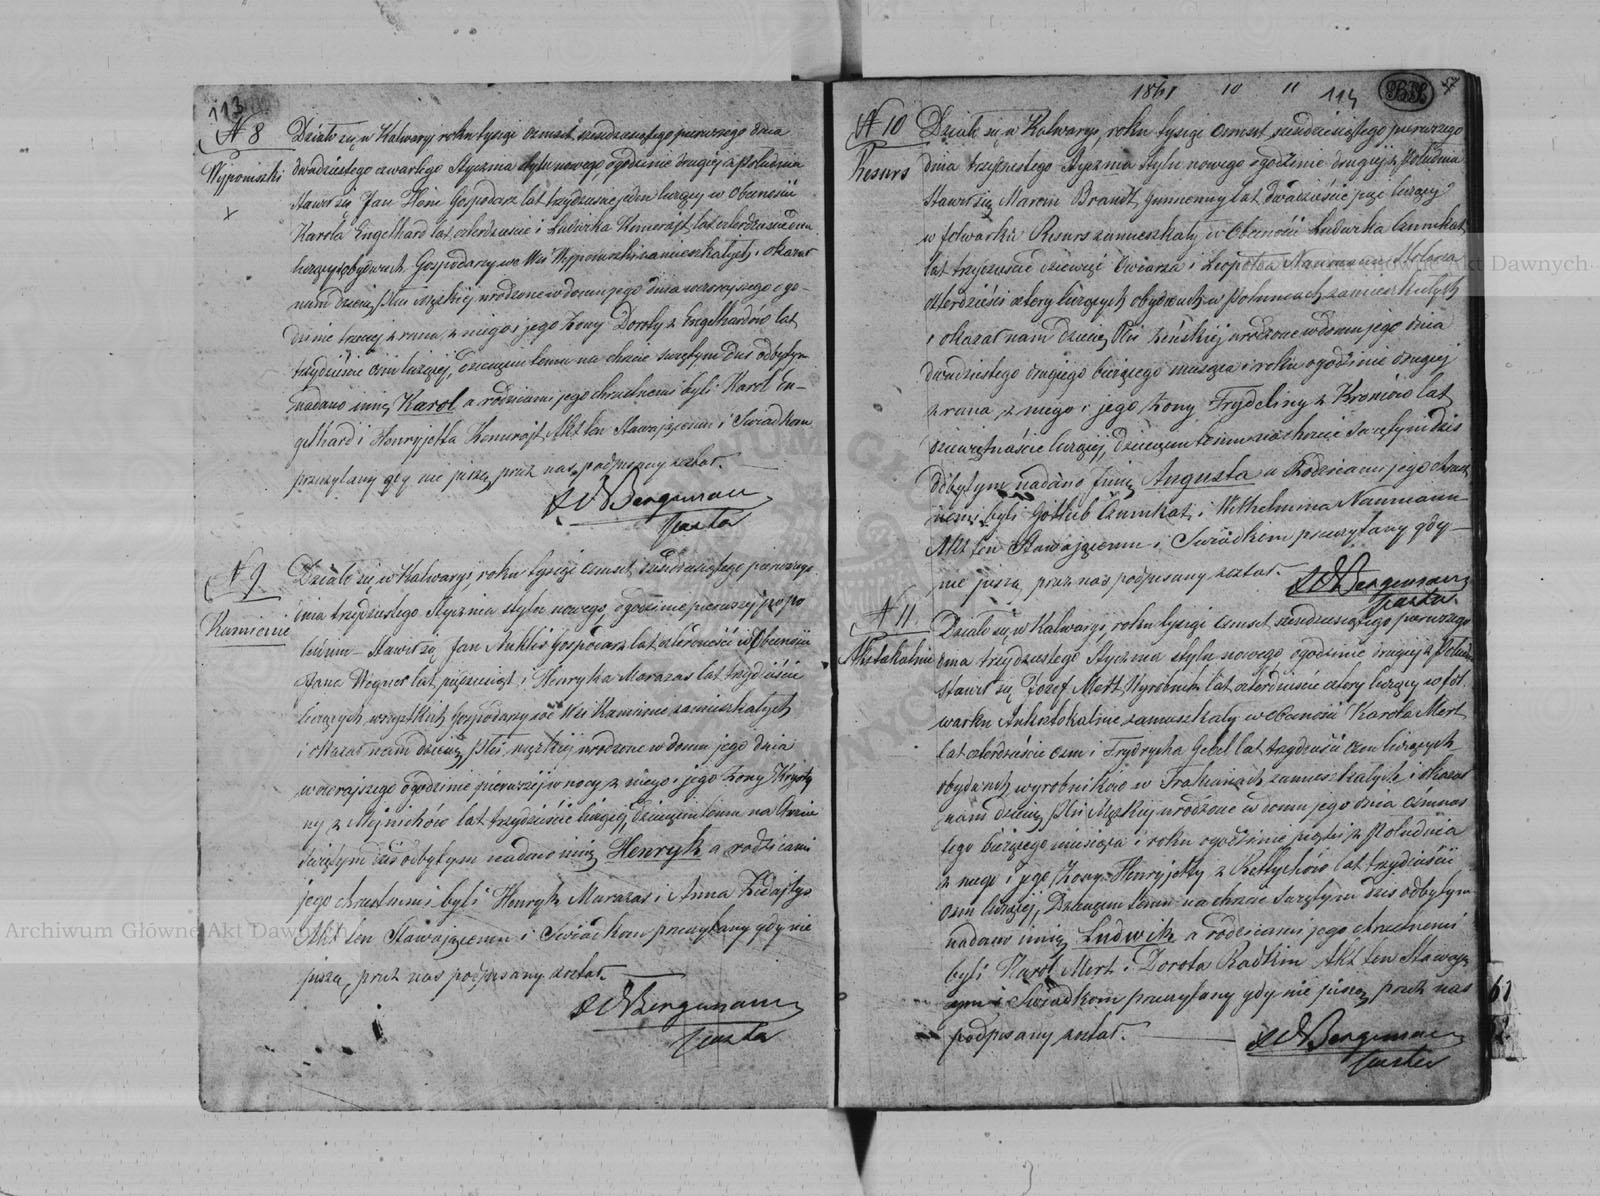 113
N 8
Wypponiszki
Działo się w Kalwaryi roku tysiąc ośmset sześdziesiątego pierwszego dnia
dwudziestego czwartego Stycznia stylu nowego, o godzinie drugiej z południa
stawił się Jan Gospodarz lat trzydzieście jeden liczący w Obecności
Karola Engelhard lat czterdzieście i Ludwika lat czterdzieście
liczących obydwuch Gospodarzy we Wsi zamieszkałych, i okazał
nam dziecię płci męzkiej urodzone w domu jego dnia wczorajszego o go-
dzinie trzeciej z rana, z niego i jego żony Doroty z Engelhardów lat
trzydzieście liczącej, Dziecięciu temu na chrzcie świętym dziś odbytym
nadano imię Karol a rodzicami jego chrzestnemi byli Karol En-
gelhard i Henryjetta Akt ten Stawającemu i Świadkom
przeczytany gdy nie piszą, przez nas podpisany został.
Bergemann
Pastor
N 9.
Kamienie
Działo się w Kalwaryi, roku tysiąc ośmset sześdziesiątego pierwszego
dnia trzydziestego Stycznia stylu nowego, o godzinie pierwszej po po
łudniu – Stawił się Jan Gospodarz lat w Obecności
Wegner lat pięćdziesiąt i Henryka Marazas lat trzydzieście
liczących wszystkich Gospodarzy we Wsi Kamienie zamieszkałych
i okazał nam dziecię płci męzkiej urodzone w domu jego dnia
wczorajszego o godzinie pierwszej w nocy z niego i jego żony Krysty
ny z lat trzydzieście liczącej, dziecięciu temu na Chrzcie
świętym dziś odbytym nadano imię Henryk a rodzicami
jego chrzestnemi byli Henryk Marazas i Anna
Akt ten Stawającemu i Świadkom przeczytany gdy nie
piszą, przez nas podpisany został.
Bergemann
Pastor
1861 10 11 114 57
N 10
Resurs
Działo się w Kalwaryi, roku tysiąc ośmset sześdziesiątego pierwszego
dnia trzydziestego Stycznia stylu nowego o godzinie drugiej z Południa
stawił się Marcin Brandt, Gumienny lat dwadzieście pięć liczący
w folwarku Resurs zamieszkały w Obecności Ludwika
lat trzydzieście dziewięć Owczarza i Leopolda Naumann Stolarza
czterdzieści cztery liczących obydwuch w zamieszkałych
i okazał nam dziecię Płci Żeńskiej urodzone w domu jego dnia
dwudziestego drugiego bieżącego miesiąca i roku o godzinie drugiej
z rana, z niego i jego żony Frydeliny z lat
dziewiętnaście liczącej, Dziecięciu temu na chrzcie świętym dziś
odbytym nadano Imię Augusta a Rodzicami jego chrzest
nemi byli Gotlieb i Wilhelmina Naumann
Akt ten Stawającemu i Świadkom przeczytany gdy
nie piszą przez nas podpisany został.
Bergemann
Pastor
N 11.
Działo się w Kalwaryi, roku tysiąc ośmset sześdziesiątego pierwszego
dnia trzydziestego Stycznia stylu nowego, o godzinie drugiej z Połud
Stawił się Józef Mert Wyrobnik lat czterdzieście cztery liczący w fol
warku zamieszkały w obecności Karola Mert
lat czterdzieście ośm i Frydrycha Gebel lat trzydzieście ośm liczących
obydwuch wyrobników w zamieszkałych i okazał
nam dziecię płci Męzkiej urodzone w domu jego dnia ośmnas
tego bieżącego miesiąca i roku o godzinie piątej z Południa
z niego i jego żony Henryjetty z lat trzydzieście
ośm liczącej, Dziecięciu temu na chrzcie świętym dziś odbytym
nadano imię Ludwik a rodzicami jego chrzestnemi
byli Karol Mert i Dorota Radkin Akt ten Stawają
cym i Świadkom przeczytany gdy nie piszą, przez nas
podpisany został.
Bergemann
Pastor
Archiwum Główne Akt Dawnych
Archiwum Główne Akt Dawnych